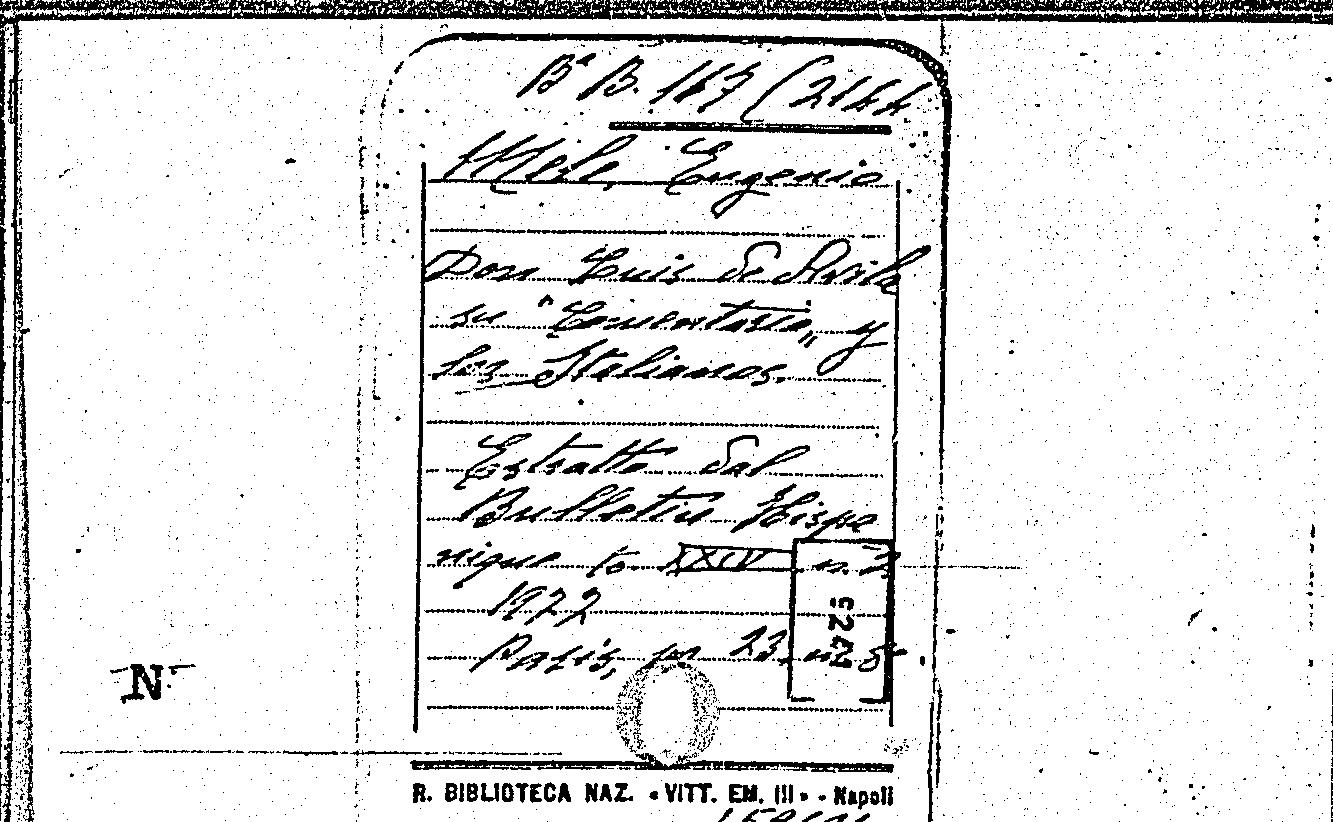 Bª B. 167 (2144
Mele, Eugenio
Don Luis de Avila
su "Comentario„ y
los Italianos.
Estratto dal
Bulletin Hispa
nique to. XXIV n. 2
1922
Paris, pp 23. in 8º
5247
N
R. BIBLIOTECA NAZ. «VITT. EM. III» - Napoli